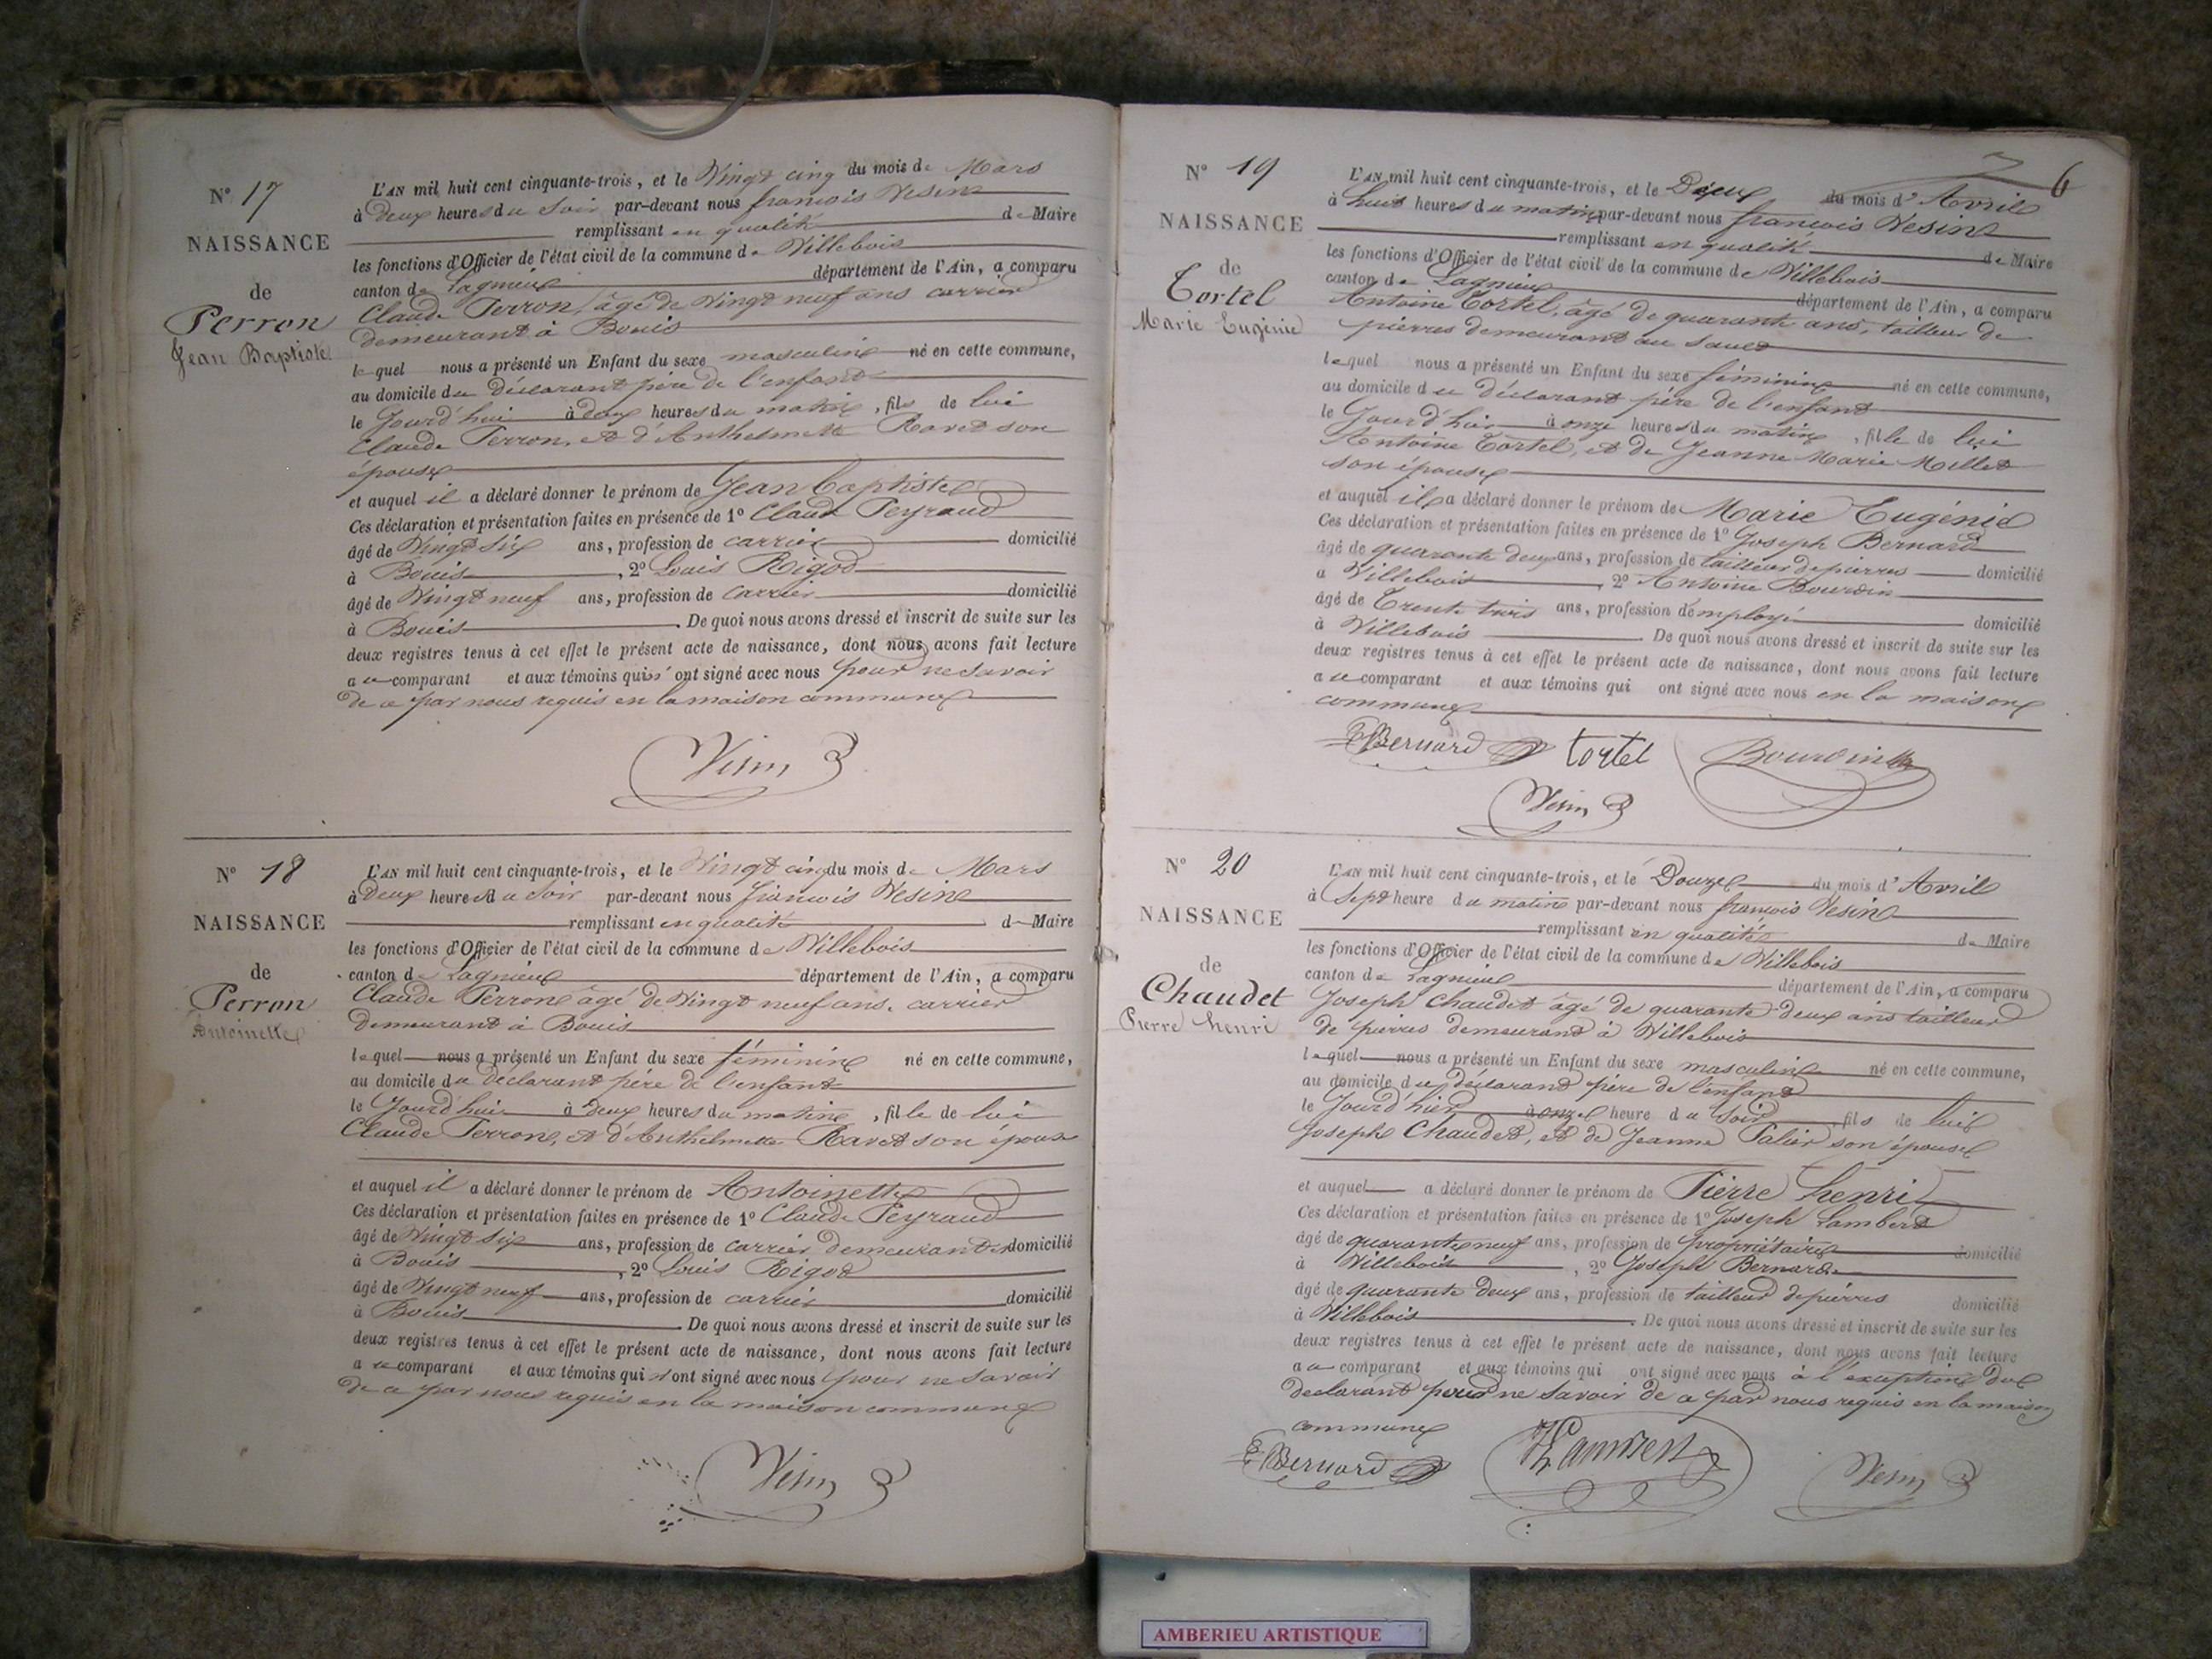 N° 17
NAISSANCE
de
Perron
Jean Baptiste
L'AN mil huit cent cinquante-trois, et le Vingt cinq du mois de Mars
à Deux heures du Soir par-devant nous françois Vesin
remplissant en qualité de Maire
les fonctions d'Officier de l'état civil de la commune de Villebois
canton de Lagnieu département de l'Ain, a comparu
Claude Perron, âgé de Vingt neuf ans carrier
demeurant à Bouis
lequel nous a présenté un Enfant du sexe masculin né en cette commune,
au domicile du déclarant père de l'enfant
le Jourd'hui à deux heures du matin, fils de lui
Claude Perron, et d'Anthelmette Ravet son
épouse
et auquel il a déclaré donner le prénom de Jean Baptiste
Ces déclaration et présentation faites en présence de 1° Claude Peyraud
âgé de Vingt six ans, profession de carrier domicilié
à Bouis, 2° Louis Rigod
âgé de Vingt neuf ans, profession de Carrier domicilié
à Bouis. De quoi nous avons dressé et inscrit de suite sur les
deux registres tenus à cet effet le présent acte de naissance, dont nous avons fait lecture
au comparant et aux témoins qui n'ont signé avec nous pour ne savoir
de ce par nous requis en la maison commune
Vesin
N° 18
NAISSANCE
de
Perron
Antoinette
L'AN mil huit cent cinquante-trois, et le Vingt cinq du mois de Mars
à Deux heures du Soir par-devant nous françois Vesin
remplissant en qualité de Maire
les fonctions d'Officier de l'état civil de la commune de Villebois
canton de Lagnieu département de l'Ain, a comparu
Claude Perron âgé de Vingt neuf ans, carrier
demeurant à Bouis
lequel nous a présenté un Enfant du sexe féminin né en cette commune,
au domicile du déclarant père de l'enfant
le Jourd'hui à deux heures du matin, fille de lui
Claude Perron, et d'Anthelmette Ravet son épouse
et auquel il a déclaré donner le prénom de Antoinette
Ces déclaration et présentation faites en présence de 1° Claude Peyraud
âgé de Vingt six ans, profession de carrier demeurant domicilié
à Bouis, 2° Louis Rigod
âgé de Vingt neuf ans, profession de carrier domicilié
à Bouis. De quoi nous avons dressé et inscrit de suite sur les
deux registres tenus à cet effet le présent acte de naissance, dont nous avons fait lecture
au comparant et aux témoins qui n'ont signé avec nous pour ne savoir
de ce par nous requis en la maison commune
Vesin
6
N° 19
NAISSANCE
de
Tortel
Marie Eugénie
L'AN mil huit cent cinquante-trois, et le Deux du mois d'Avril
à huit heures du matin par-devant nous françois Vesin
remplissant en qualité de Maire
les fonctions d'Officier de l'état civil de la commune de Villebois
canton de Lagnieu département de l'Ain, a comparu
Antoine Tortel, âgé de quarante ans, tailleur de
pierres demeurant au Sault
lequel nous a présenté un Enfant du sexe féminin né en cette commune,
au domicile du déclarant père de l'enfant
le Jourd'hier à onze heures du matin, fille de lui
Antoine Tortel, et de Jeanne Marie Millet
son épouse
et auquel il a déclaré donner le prénom de Marie Eugénie
Ces déclaration et présentation faites en présence de 1° Joseph Bernard
âgé de quarante deux ans, profession de tailleur de pierres domicilié
à Villebois, 2° Antoine Bourdin
âgé de Trente trois ans, profession d'employé domicilié
à Villebois. De quoi nous avons dressé et inscrit de suite sur les
deux registres tenus à cet effet le présent acte de naissance, dont nous avons fait lecture
au comparant et aux témoins qui ont signé avec nous en la maison
commune
Bernard Tortel Bourdin
Vesin
N° 20
NAISSANCE
de
Chaudet
Pierre henri
L'AN mil huit cent cinquante-trois, et le Douze du mois d'Avril
à Sept heure du matin par-devant nous françois Vesin
remplissant en qualité de Maire
les fonctions d'Officier de l'état civil de la commune de Villebois
canton de Lagnieu département de l'Ain, a comparu
Joseph Chaudet âgé de quarante deux ans tailleur
de pierres demeurant à Villebois
lequel nous a présenté un Enfant du sexe masculin né en cette commune,
au domicile du déclarant père de l'enfant
le Jourd'hier à onze heure du Soir, fils de lui
Joseph Chaudet, et de Jeanne Palier son épouse
et auquel a déclaré donner le prénom de Pierre henri
Ces déclaration et présentation faites en présence de 1° Joseph Lambert
âgé de quarante neuf ans, profession de propriétaire domicilié
à Villebois, 2° Joseph Bernard
âgé de quarante deux ans, profession de tailleur de pierres domicilié
à Villebois. De quoi nous avons dressé et inscrit de suite sur les
deux registres tenus à cet effet le présent acte de naissance, dont nous avons fait lecture
au comparant et aux témoins qui ont signé avec nous à l'exception du
déclarant pour ne savoir de ce par nous requis en la maison
commune
Bernard Lambert Vesin
AMBERIEU ARTISTIQUE